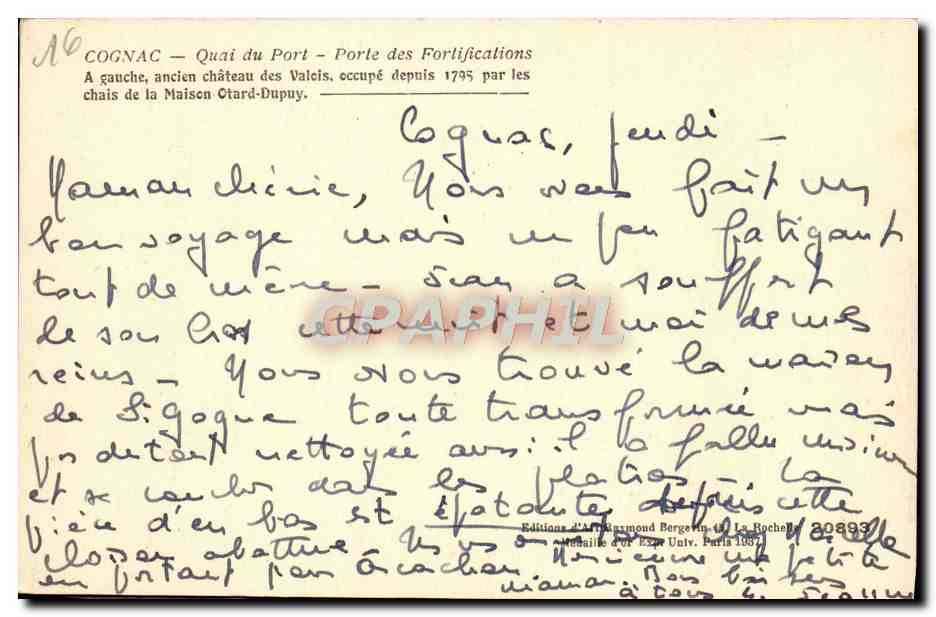 16
COGNAC — Quai du Port - Porte des Fortifications
A gauche, ancien château des Valois, occupé depuis 1795 par les
chais de la Maison Otard-Dupuy.
Cognac, jeudi —
Maman chérie, Nous avons fait un
bon voyage mais un peu fatigant
tout de même — Jean a souffert
de son bras cette nuit et moi de mes
reins — Nous avons trouvé la maison
de St Gogue toute transformée mais
pas du tout nettoyée aussi il a fallu
et se coucher dans les — La
pièce d'en bas est épatante depuis cette
cloison abattue —
en partant pour Arcachon petite
maman. Bons baisers
à tous
CPAPHIL
Editions d'Art Raymond Bergevin La Rochelle 20893
Médaille d'or Exp. Univ. Paris 1937